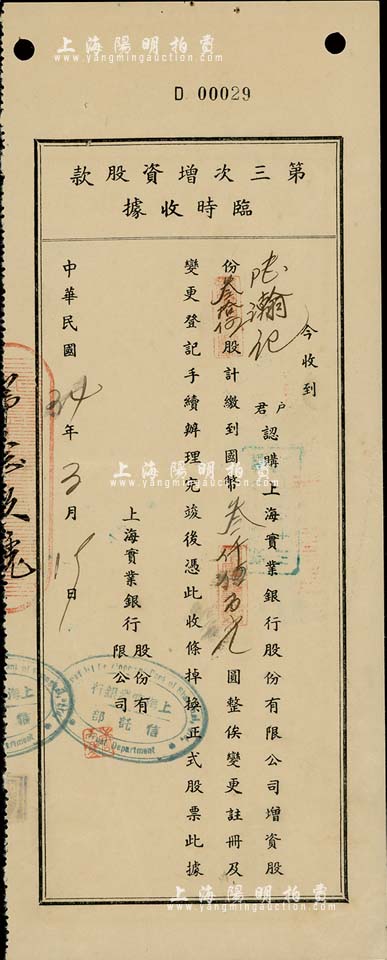 上海陽明拍賣
www.yangmingauction.com
D 00029
第三次增資股款
臨時收據
今收到
瀚記
戶君認購上海實業銀行股份有限公司增資股
份 股計繳到國幣 圓整俟變更註冊及
變更登記手續辦理完竣後憑此收條掉換正式股票此據
上海實業銀行股份有限公司
中華民國34年3月15日
上海實業銀行
信託部
Trust Department
上海陽明拍賣
www.yangmingauction.com
上海陽明拍賣
www.yangmingauction.com